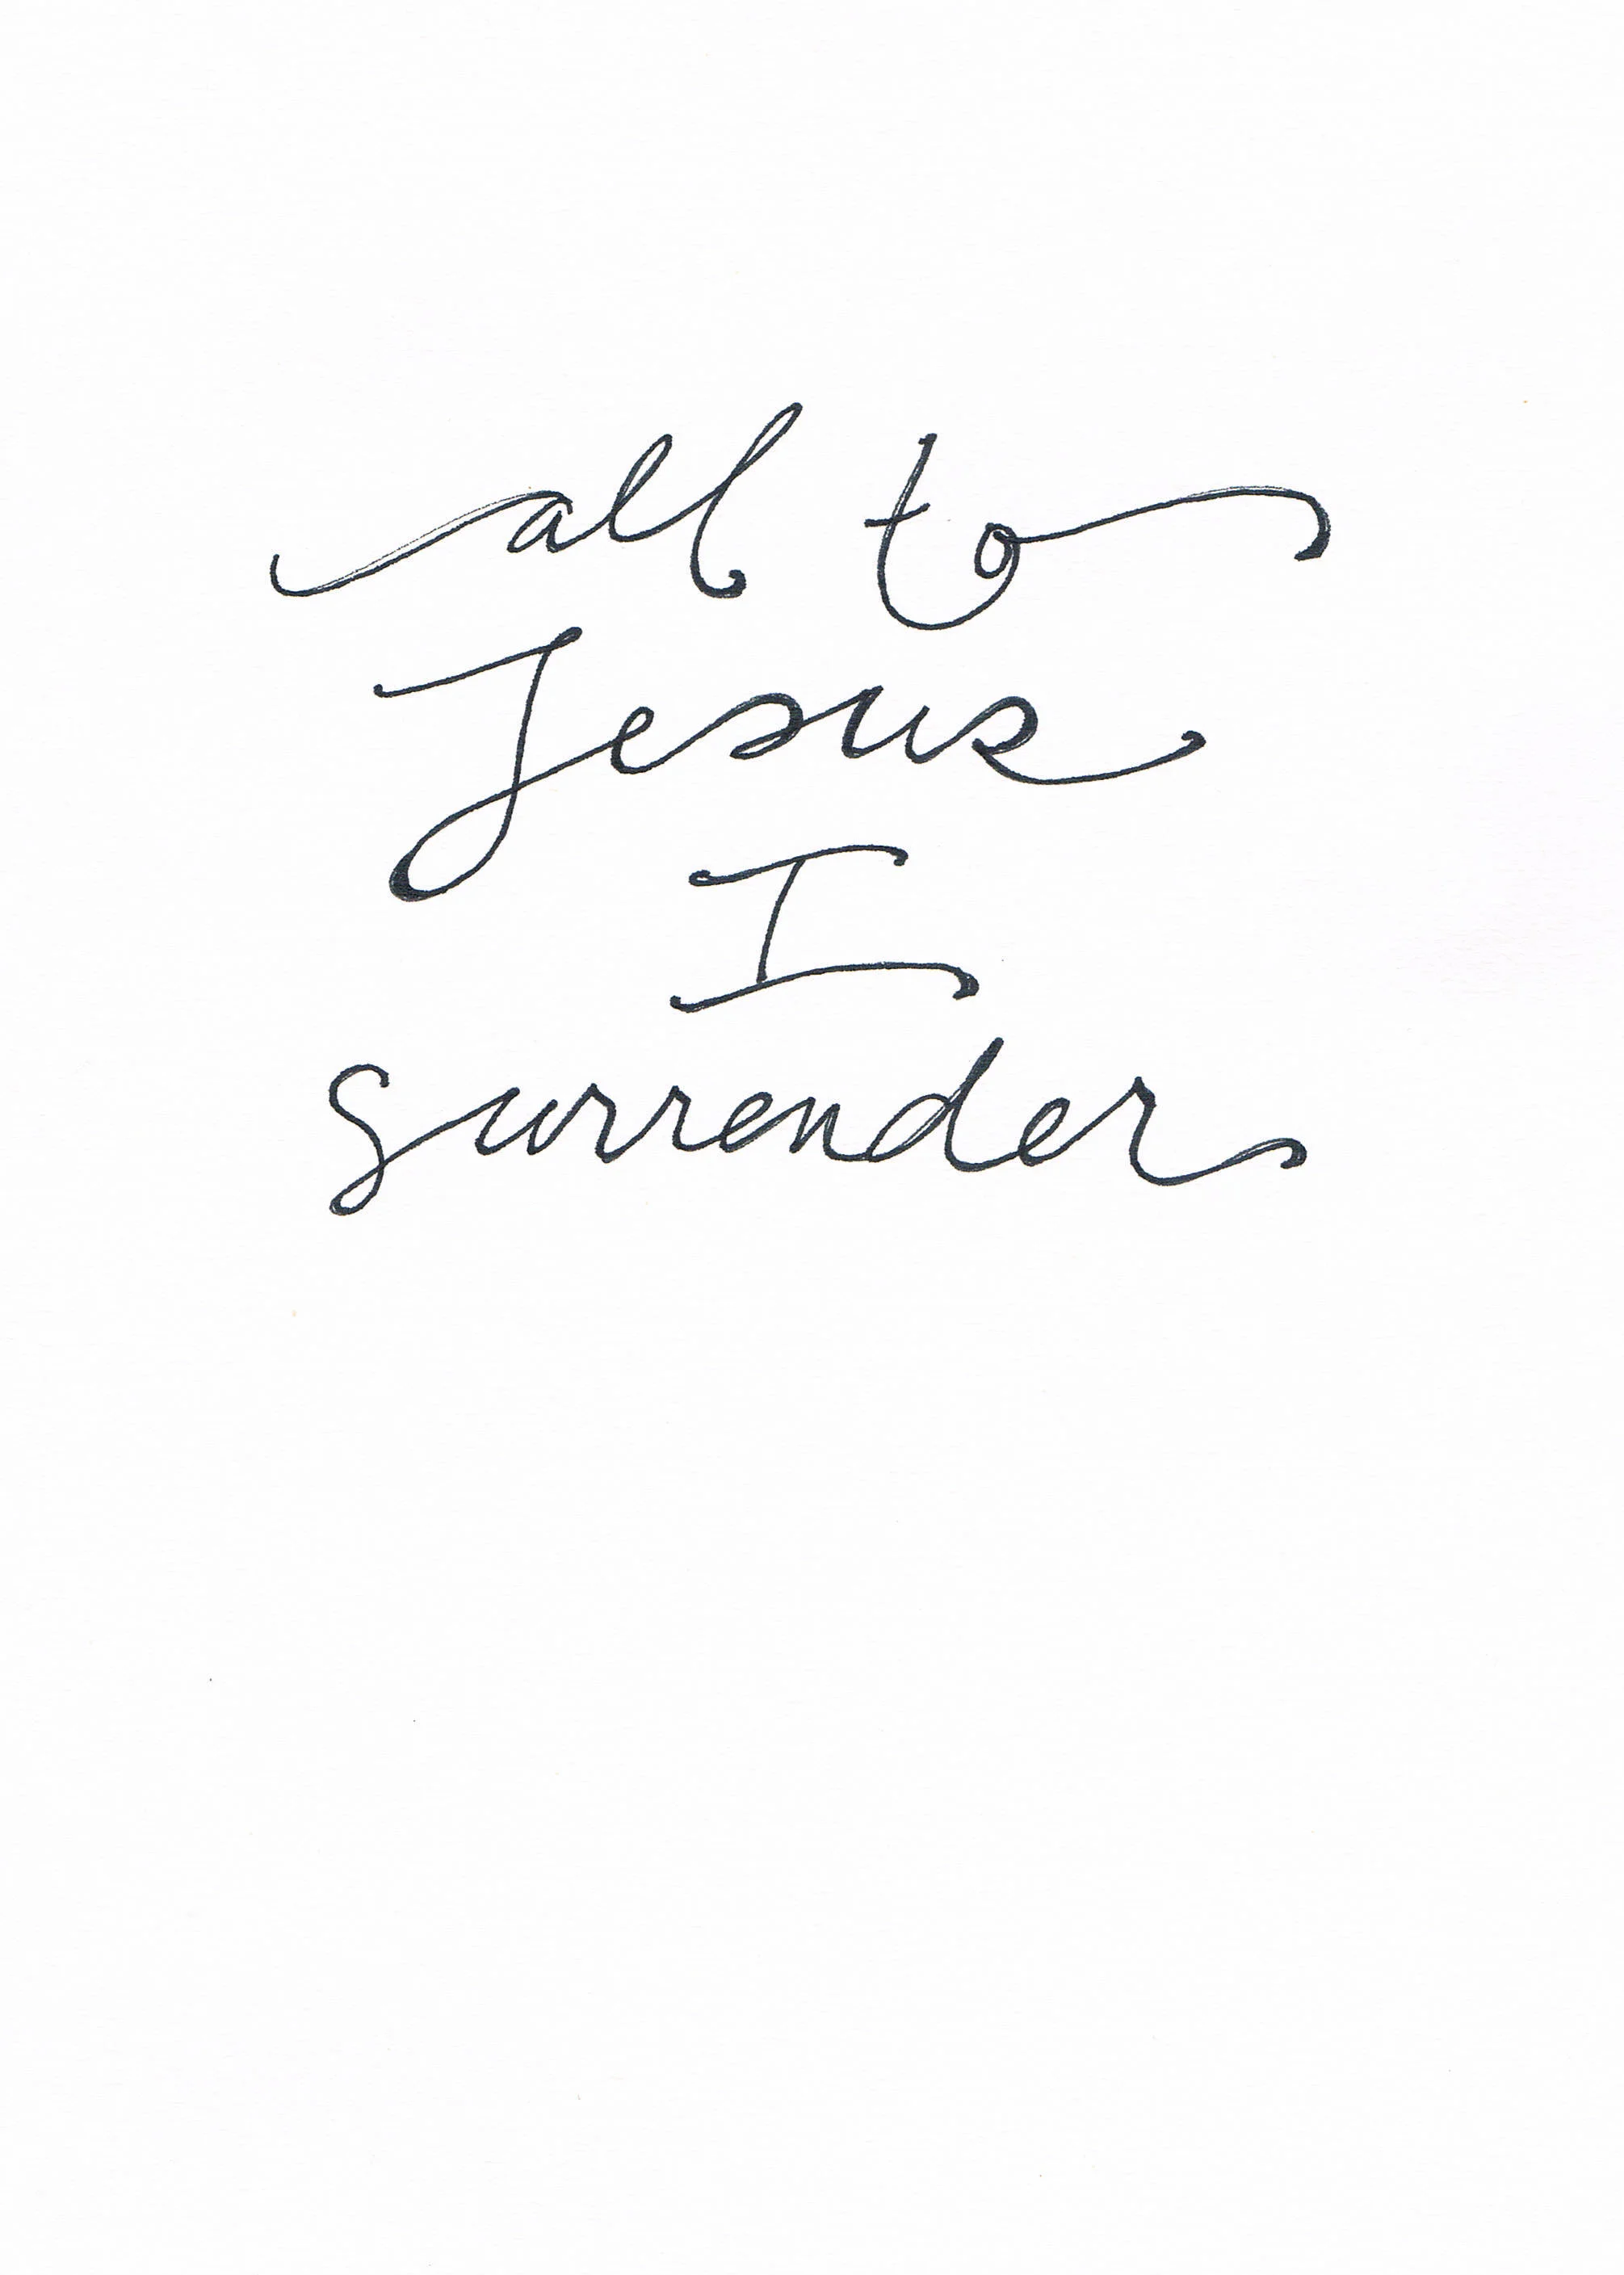 all to
Jesus
I
surrender